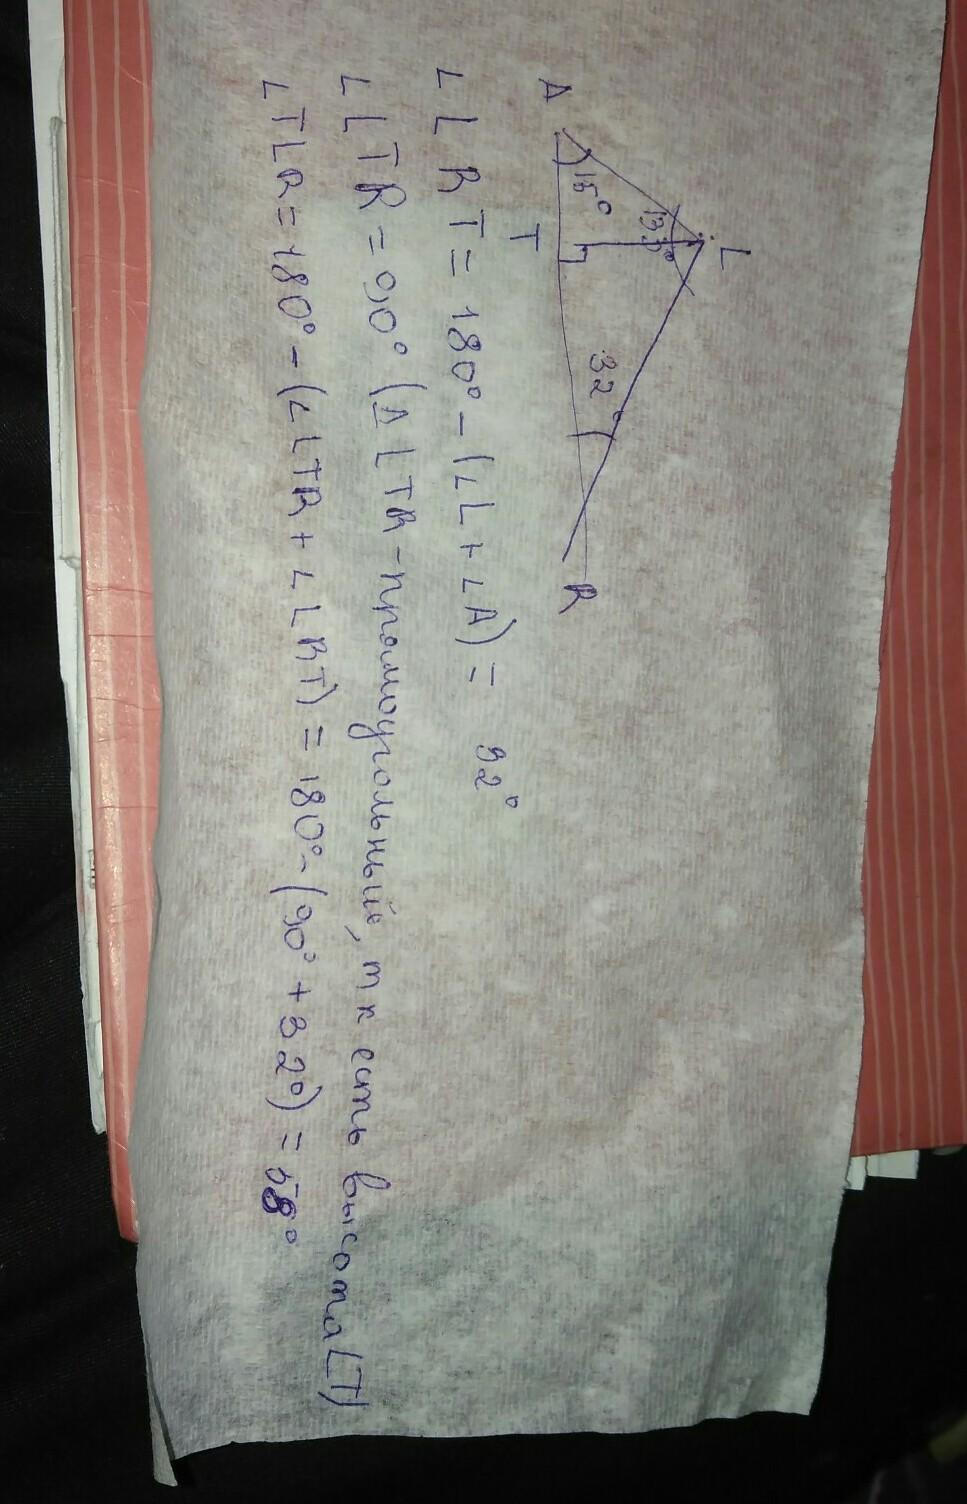 L
A
133°
15°
32°
T
R
∠LRT = 180° - (∠L + ∠A) = 32°
∠LTR = 90° (∆LTR - прямоугольный, тк есть высота LT)
∠TLR = 180° - (∠LTR + ∠LRT) = 180° - (90° + 32°) = 58°